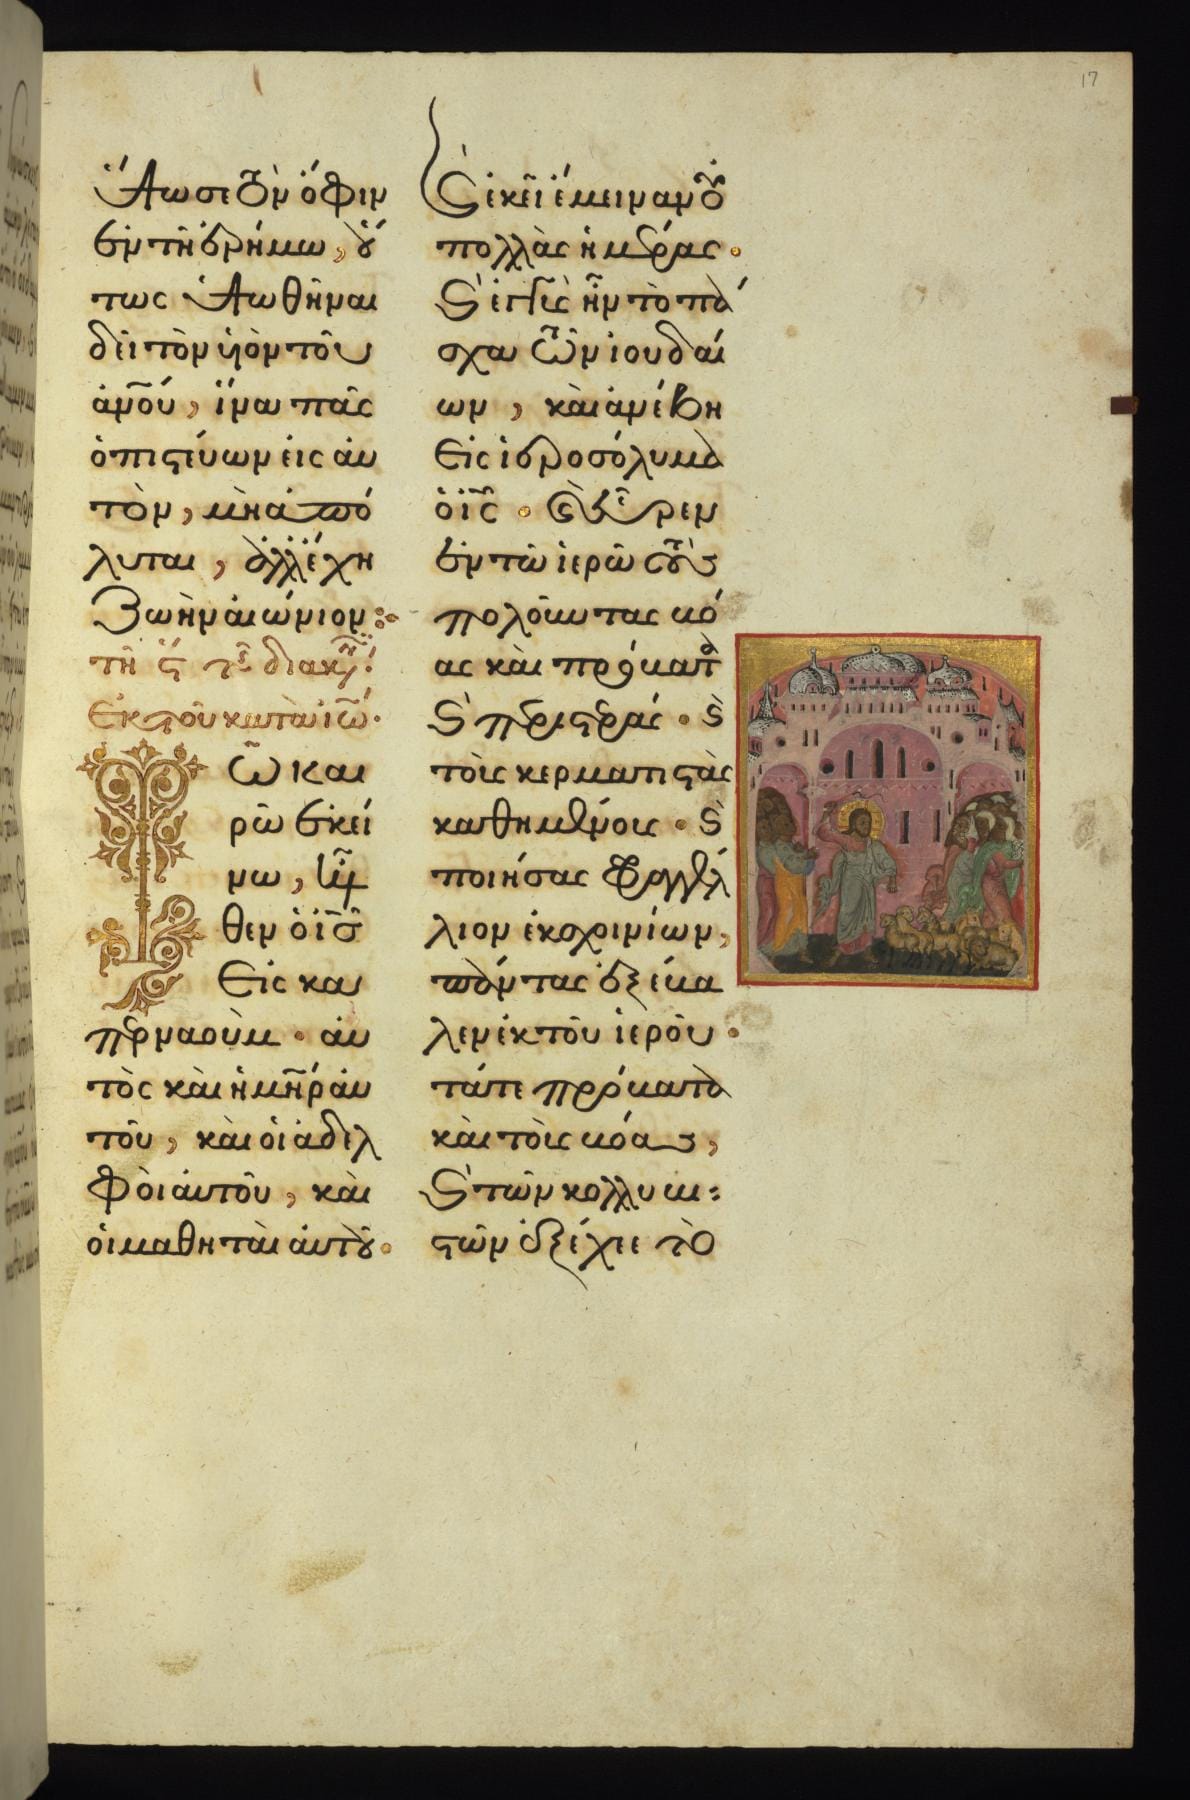 17
ὕψωσε τὸν ὄφιν
ἐν τῆ ἐρήμω, οὕ
τως ὑψωθῆναι
δεῖ τὸν υἱὸν τοῦ
ἀν͞ου, ἵνα πᾶς
ὁ πιστεύων εἰς αυ
τὸν, μὴ ἀπό
λυται, ἀλλ' ἔχη
ζωὴν αἰώνιον
τῆ ϛ τῆς διακιν
ἐκ τοῦ κατὰ ἰω
Τῶ και
ρῶ ἐκεί
νω, ἦλ
θεν ὁ ι͞ς
εἰς κα
περναοὺμ · αὐ
τὸς καὶ ἡ μ͞ηρ αὐ
τοῦ, καὶ οἱ ἀδελ
φοὶ αὐτοῦ, καὶ
οἱ μαθηταὶ αὐτοῦ ·
Ϗ ἐκεῖ ἔμειναν οὐ
πολλὰς ἡμέρας ·
ϗ ἐγγὺς ἦν τὸ πά
σχα τῶν ἰουδαί
ων, καὶ ἀνέβη
εἰς ἱεροσόλυμα
ὁ ι͞ς · καὶ εὗρεν
ἐν τῶ ἱερῶ τοὺς
πολοῦντας βό
ας καὶ πρόβατα
ϗ περιστεράς · ϗ
τοὺς κερματιστὰς
καθημένους · ϗ
ποιήσας φραγγέλ
λιον ἐκ σχοινίων,
πάντας ἐξέβα
λεν ἐκ τοῦ ἱεροῦ ·
τά τε πρόβατα
καὶ τοὺς βόας,
ϗ τῶν κολλυβι
στῶν ἐξέχεε τὸ